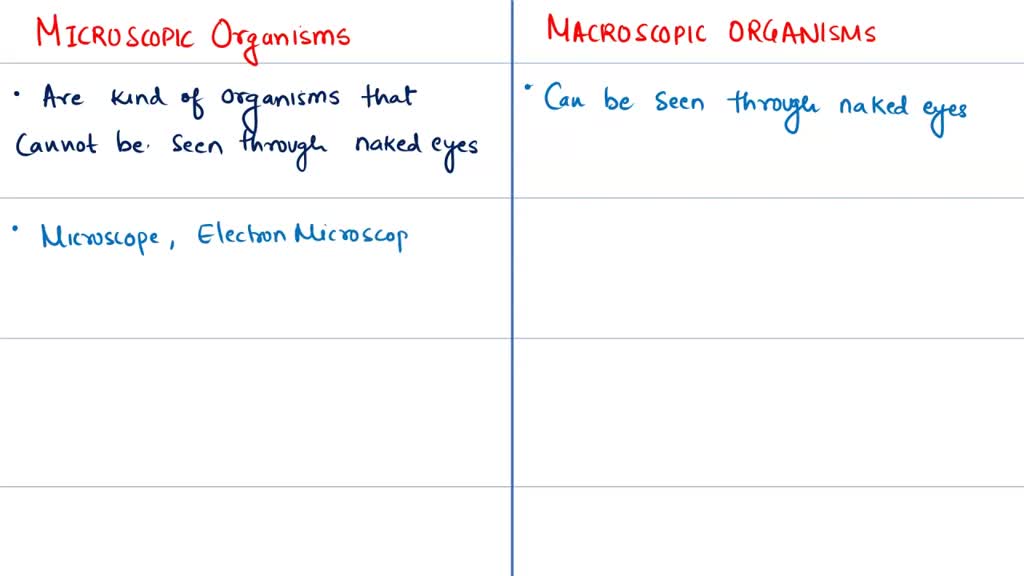 MICROSCOPIC Organisms
MACROSCOPIC ORGANISMS
• Are kind of organisms that
cannot be. seen through naked eyes
• Can be seen through naked eyes
• Microscope, Electron Microscop